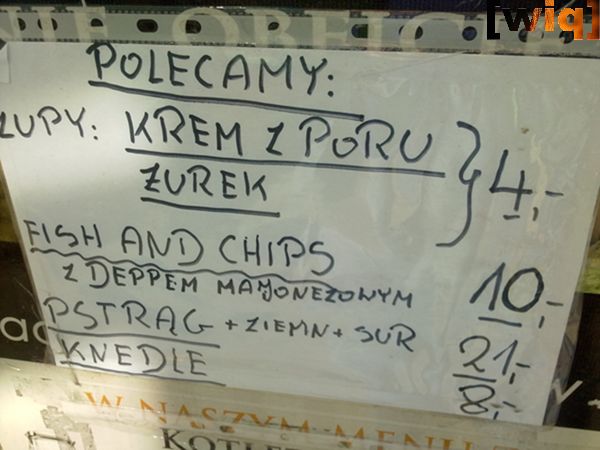 [wiq]
POLECAMY:
ZUPY: KREM Z PORU
ŻUREK
4,-
FISH AND CHIPS
Z DEPPEM MAJONEZOWYM
10,-
PSTRĄG + ZIEMN + SUR
21,-
KNEDLE
8,-
W NASZYM MENU